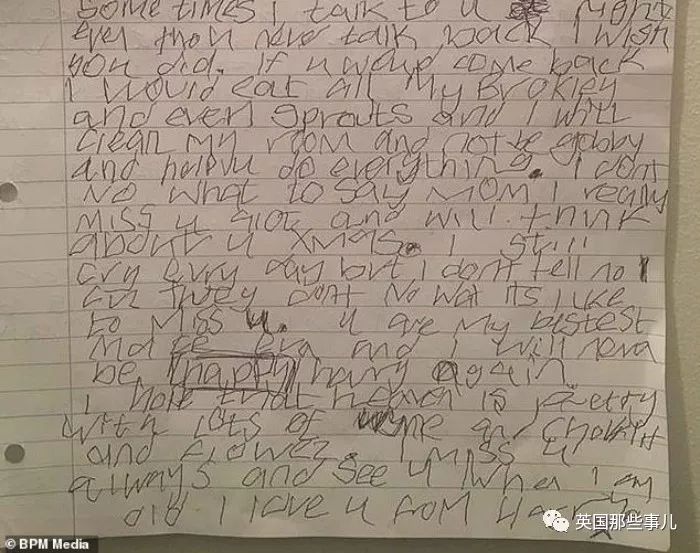 some times i talk to u Mom
even thou never talk back I wish
you did. if u weud come back
I would eat all My Brokley
and even sprouts and I will
clean my room and not be gobby
and help u do everything. I dont
No what to say MOM I really
Miss u alot and will think
about u xmas. I still
cry evry day but i dont tell no 1
cuz they dont No wat its like
to Miss u. u are My bistest
Mate eva and I will neva
be happy harry again
i hope that heaven is pretty
with lots of wine an choklit
and flowez. I Miss u
always and see u when I am
did I love u from Harry
© BPM Media
英国那些事儿